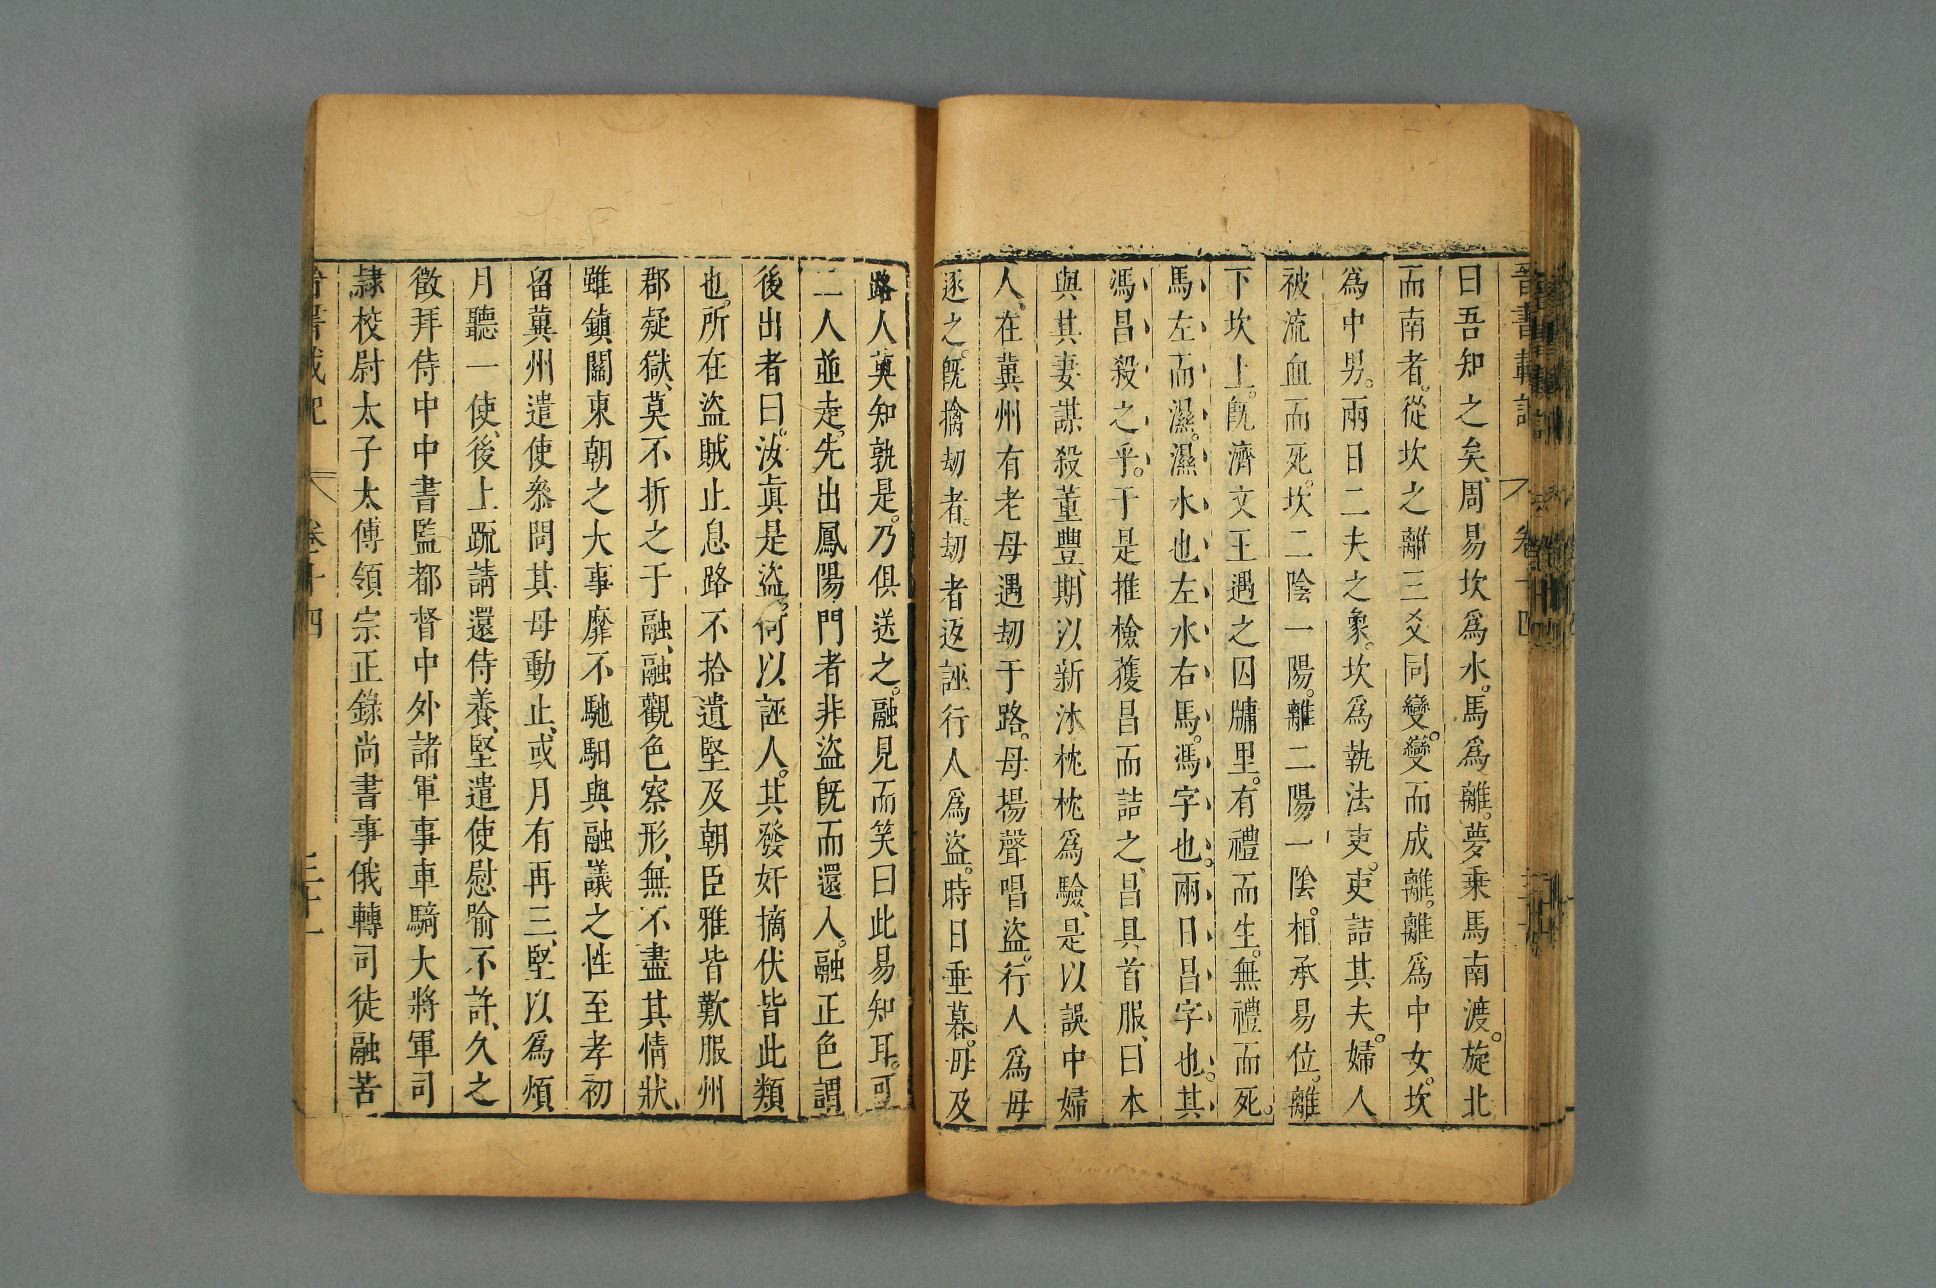 晉書載記 卷十四
曰吾知之矣、周易坎爲水。馬爲離。夢乗馬南渡。旋北
而南者。從坎之離三爻同變。變而成離。離爲中女。坎
爲中男。兩日二夫之象。坎爲執法吏。吏詰其夫。婦人
被流血而死。坎二陰一陽。離二陽一陰。相承易位。離
下坎上。旣濟文王遇之囚牖里。有禮而生。無禮而死。
馬左而濕。濕水也左水右馬。馮字也。兩日昌字也。其
馮昌殺之乎。于是推檢獲昌而詰之、昌具首服、曰本
與其妻謀殺董豐、期以新沐枕枕爲驗、是以誤中婦
人。在冀州有老母遇刼于路。母揚聲唱盜。行人爲毋
逐之。旣擒刼者。刼者返誣行人爲盜。時日垂暮。毋及
路人莫知孰是。乃俱送之。融見而笑曰此易知耳。可
二人並走。先出鳳陽門者非盜旣而還入。融正色謂
後出者曰。汝眞是盜。何以誣人。其發奸摘伏皆此類
也。所在盜賊止息路不拾遺堅及朝臣雅皆歎服州
郡疑獄、莫不折之于融、融觀色察形、無不盡其情狀
雖鎮關東朝之大事靡不馳馹與融議之性至孝初
留冀州遣使叅問其母動止、或月有再三、堅以爲煩
月聽一使、後上䟽請還侍養、堅遣使慰喻不許、久之
徵拜侍中中書監都督中外諸軍事車騎大將軍司
隷校尉太子太傅領宗正錄尚書事俄轉司徒融苦
晉書載記 卷十四 三十一